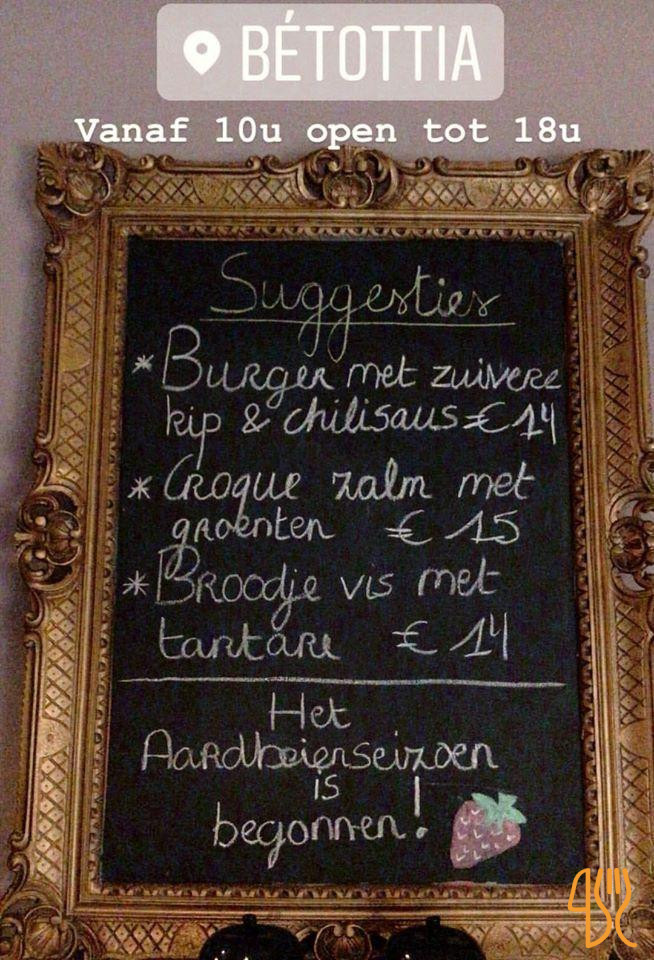 BÉTOTTIA
Vanaf 10u open tot 18u
Suggesties
* Burger met zuivere
kip & chilisaus € 14
* Croque zalm met
groenten € 15
* Broodje vis met
tartare € 14
Het
Aardbeienseizoen
is
begonnen!